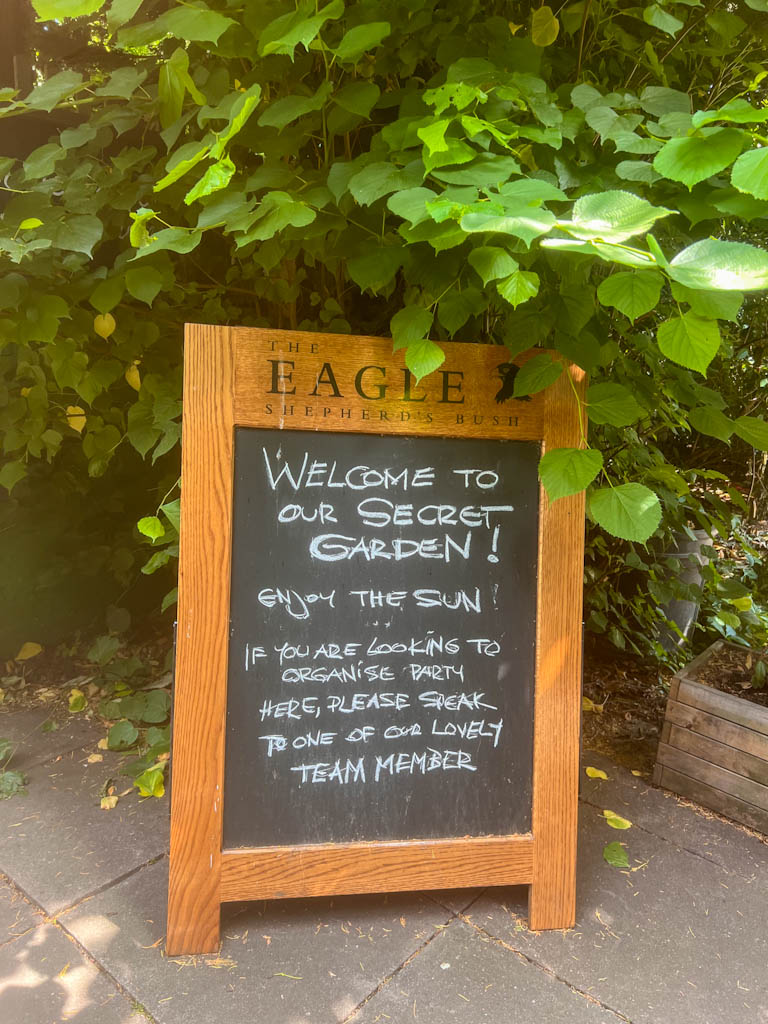 THE
EAGLE
SHEPHERD'S BUSH
WELCOME TO
OUR SECRET
GARDEN!
ENJOY THE SUN!
IF YOU ARE LOOKING TO
ORGANISE PARTY
HERE, PLEASE SPEAK
TO ONE OF OUR LOVELY
TEAM MEMBER